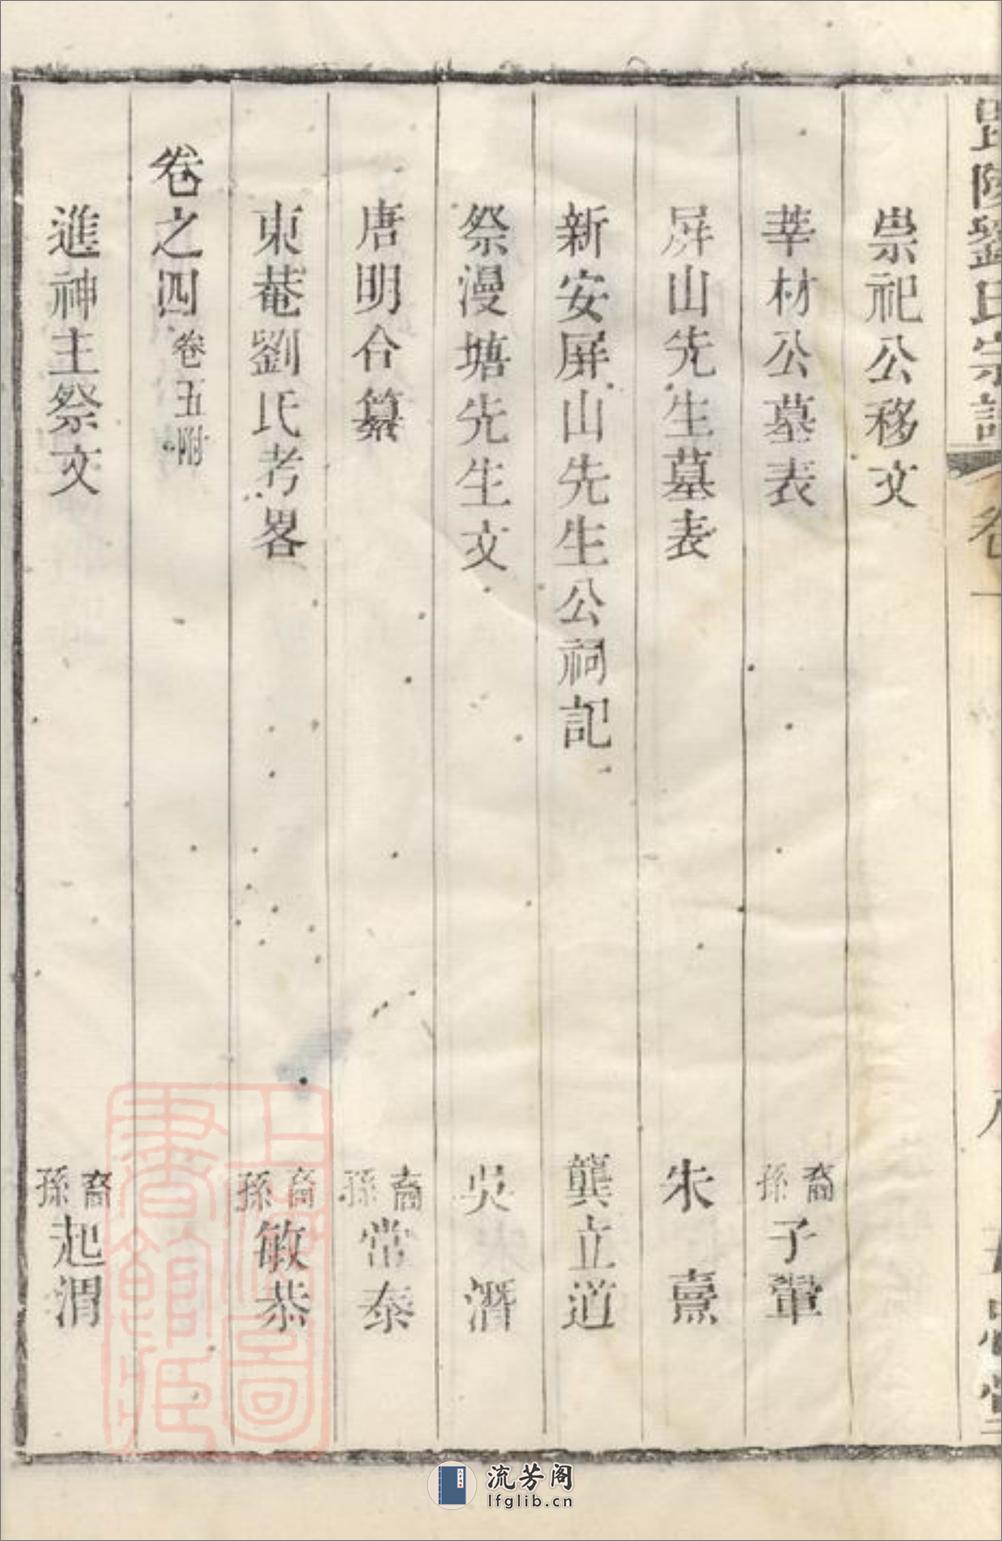 毘陵劉氏宗譜 卷一
崇祀公移文
莘材公墓表 裔孫子翬
屏山先生墓表 朱熹
新安屏山先生公祠記 龔立道
祭漫塘先生文 吳潛
唐明合纂 裔孫常泰
東菴劉氏考畧 裔孫敏恭
卷之四 卷五附
進神主祭文 裔孫起渭
上海圖書館藏
流芳阁
lfglib.cn